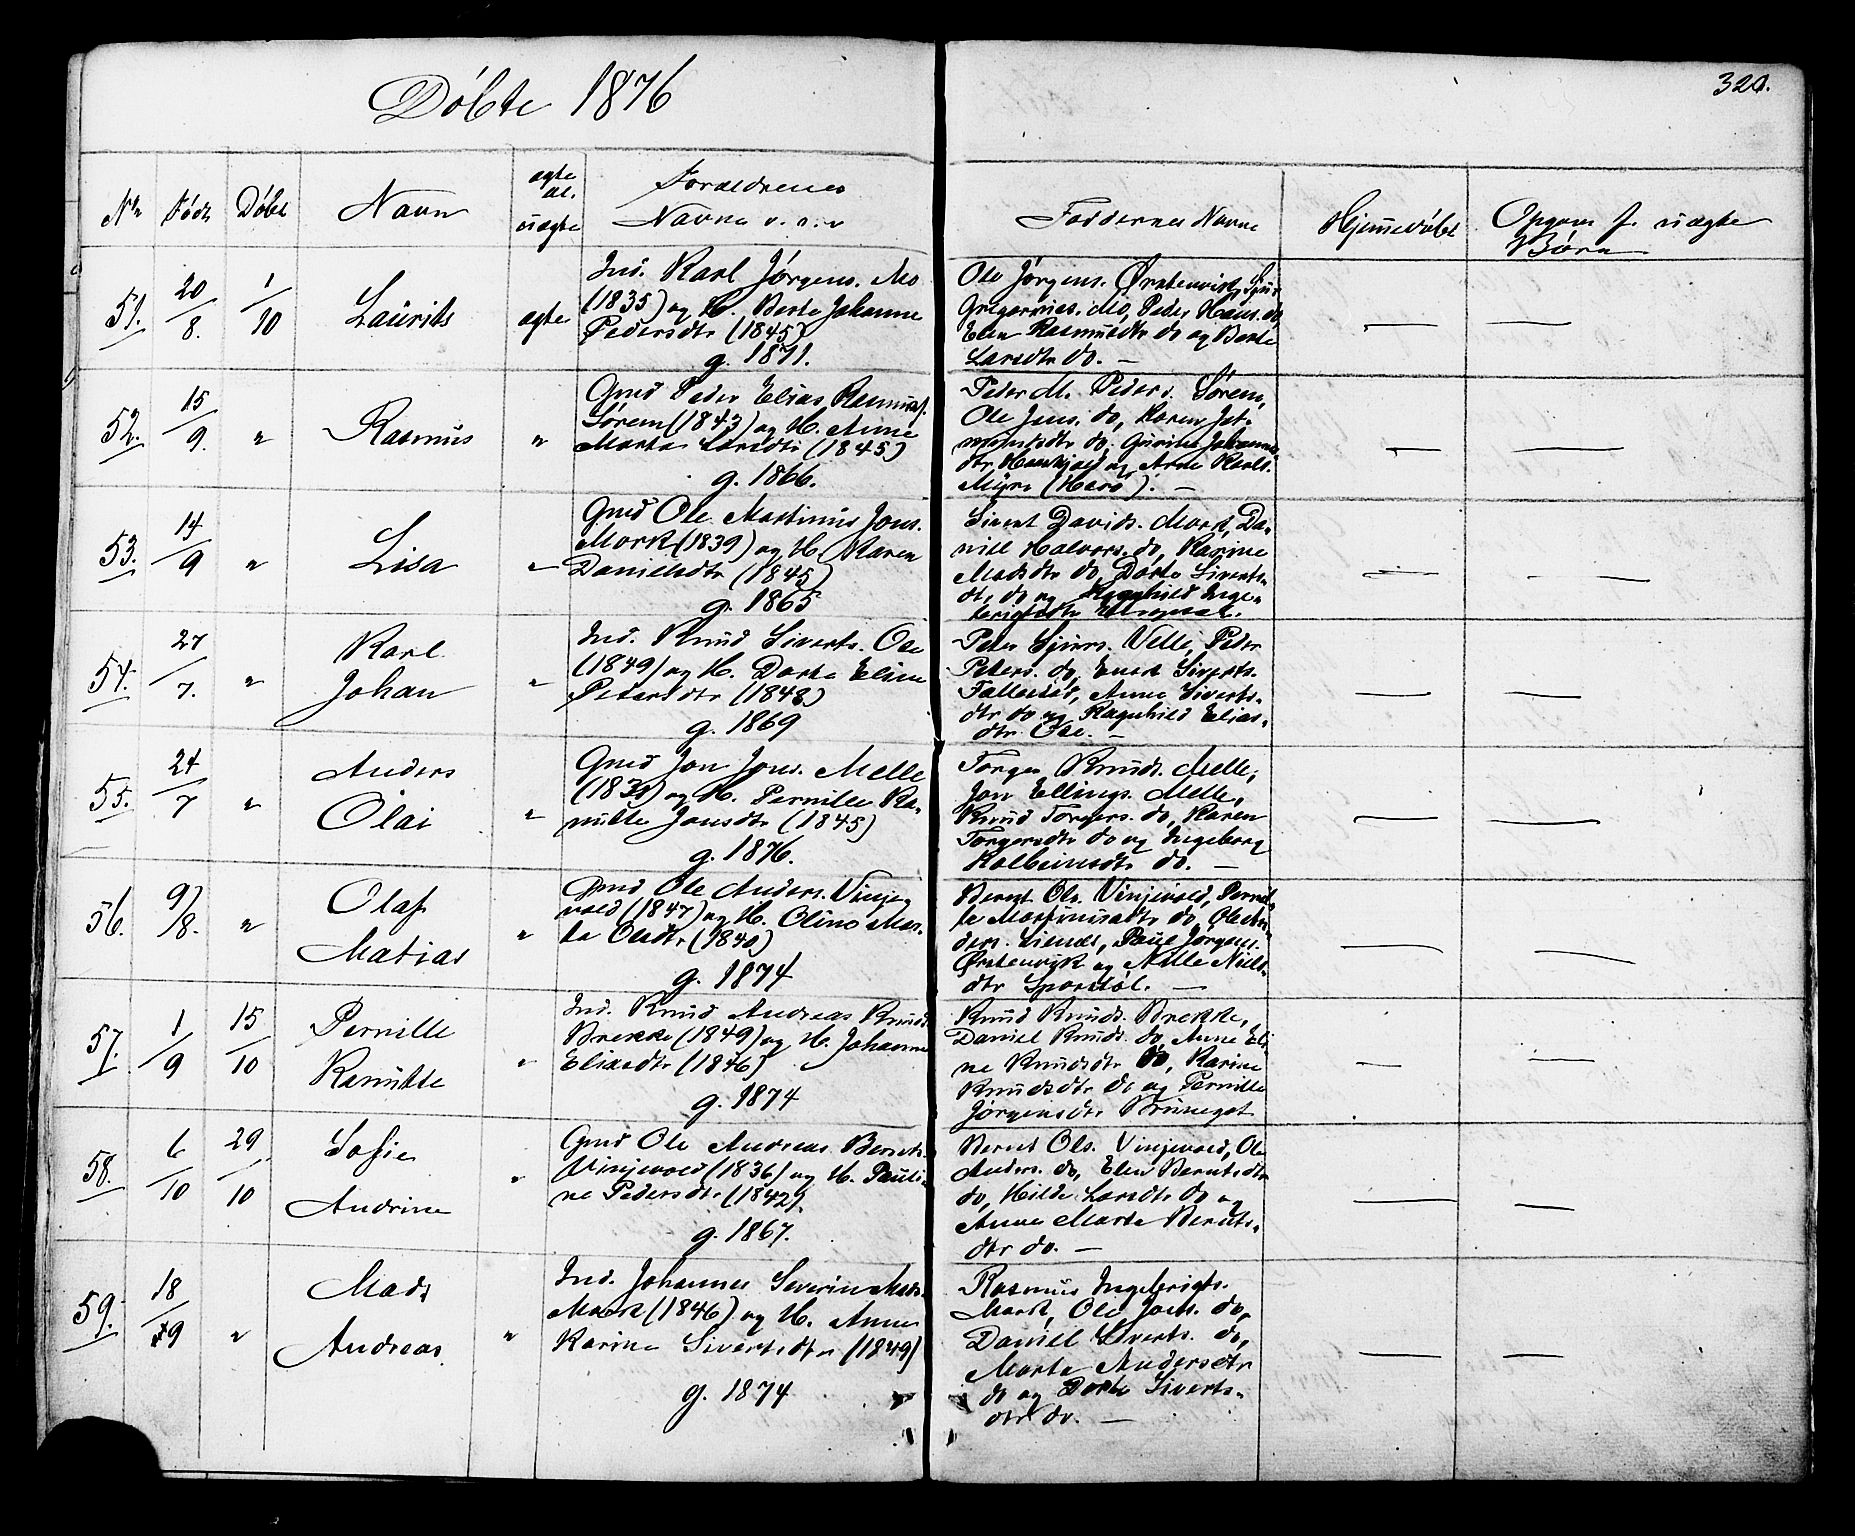 Döbte 1876
320.
No Födt Döbt Navn ægte el. uægte Forældrenes Navne o.s.v
Faddernes Navne Hjemedöbt Opgave f. uægte Börn
51. 20/8. 1/10 Laurits ægte
Ind. Karl Jörgens. Mo
(1835) og H. Berte Johanne
Pedersdtr (1845)
g. 1871.
Ole Jörgens. Örstenvik,
Gregorius. Mo, Peder Hans. do,
Elen Rasmusdtr do og Berte
Larsdtr do. —
52. 15/9. " Rasmus "
Gmd Peder Elias Rasmus.
Sörem (1843) og H. Anne
Marta Larsdtr (1845)
g. 1866.
Peder M. Peders. Sörem,
Ole Jens. do, Karen Jet-
mundsdtr do, Gurine Johannes
dtr og Arne Karls.
Myre (Harö). —
53. 14/9 " Lisa "
Gmd Ole Martinus Jons.
Mork (1839) og H. Karen
Danielsdtr (1845)
g. 1865
Sivert Davids. Mork, Da-
niel Halvors. do, Karine
Madsdtr do, Dorte Siverts-
dtr do og Ragnhild Inge-
brigtsdtr
54. 27/7. " Karl Johan "
Ind. Knud Siverts. Ose
(1849) og H. Dorte Eline
Petersdtr (1848)
g. 1869
Peter Velle, Peder
Peters. do, Enok Siverts.
Anne Siverts-
dtr do og Ragnhild Elias-
dtr Ose. —
55. 24/7 " Anders Olai "
Gmd Jon Jons. Melle
og H. Pernille Ra-
nutte Jonsdtr (1845)
g. 1876.
Torger Knuds. Melle,
Jon Ellings. Melle,
Knud Torgers. do, Karen
Torgersdtr do og Ingeborg
Kolbeinsdtr do. —
56. 9/8. " Olaf Matias "
Gmd Ole Anders. Vinje
vold (1847) og H. Oline Mar-
ta Olsdtr (1840)
g. 1874
Bernt Ols. Vinjevold, Pernil-
le Martinusdtr do, Ole An-
ders. Paul Jörgens.
Örstenvik og Nille Niels-
dtr —
57. 1/9 15/10 Pernille Ranutte "
Ind. Knud Andreas Knuds.
Brekke (1849) og H. Johanne
Eliasdtr (1846)
g. 1874
Knud Knuds. Brekke,
Daniel Knuds. do, Anne Eli-
ne Knudsdtr do, Karine
Knudsdtr do og Pernille
Jörgensdtr
58. 6/10 29/10 Sofie Andrine "
Gmd Ole Andreas Bernts.
Vinjevold (1836) og H. Pauli-
ne Pedersdtr (1842).
g. 1867.
Bernt Ols. Vinjevold, Ole
Anders. do, Elen Berntsdtr
do, Hilde Larsdtr do og
Anne Marte Bernts-
dtr do. —
59. 18/9 " Mads Andreas "
Ind. Johannes Severin Mads.
Mork (1846) og H. Anne
Karine Sivertsdtr (1849)
g. 1874
Rasmus Ingebrigts.
Mork, Ole Jons. do,
Daniel Siverts. do,
Marte Andersdtr
do og Dorte Siverts-
dtr do. —